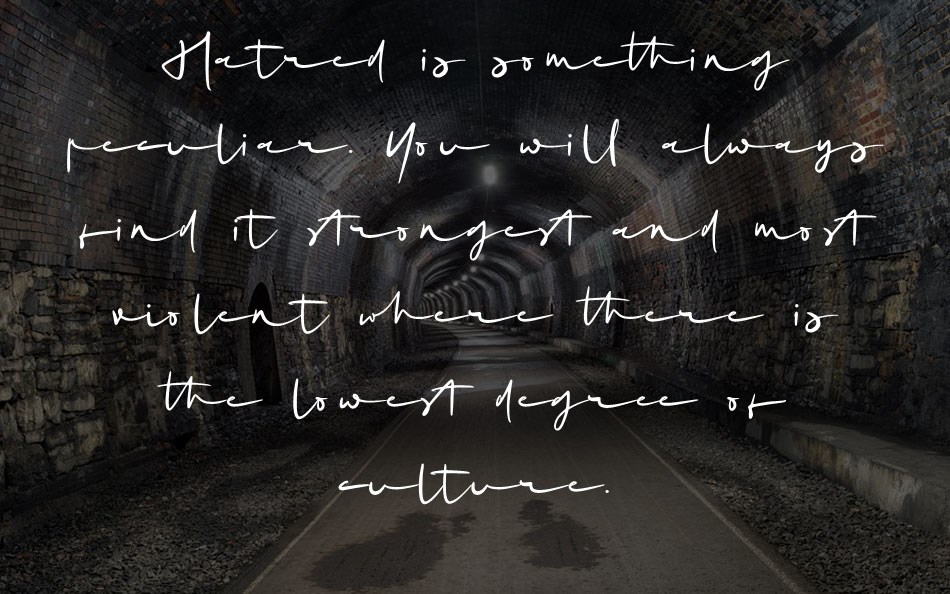 Hatred is something
peculiar. You will always
find it strongest and most
violent where there is
the lowest degree of
culture.